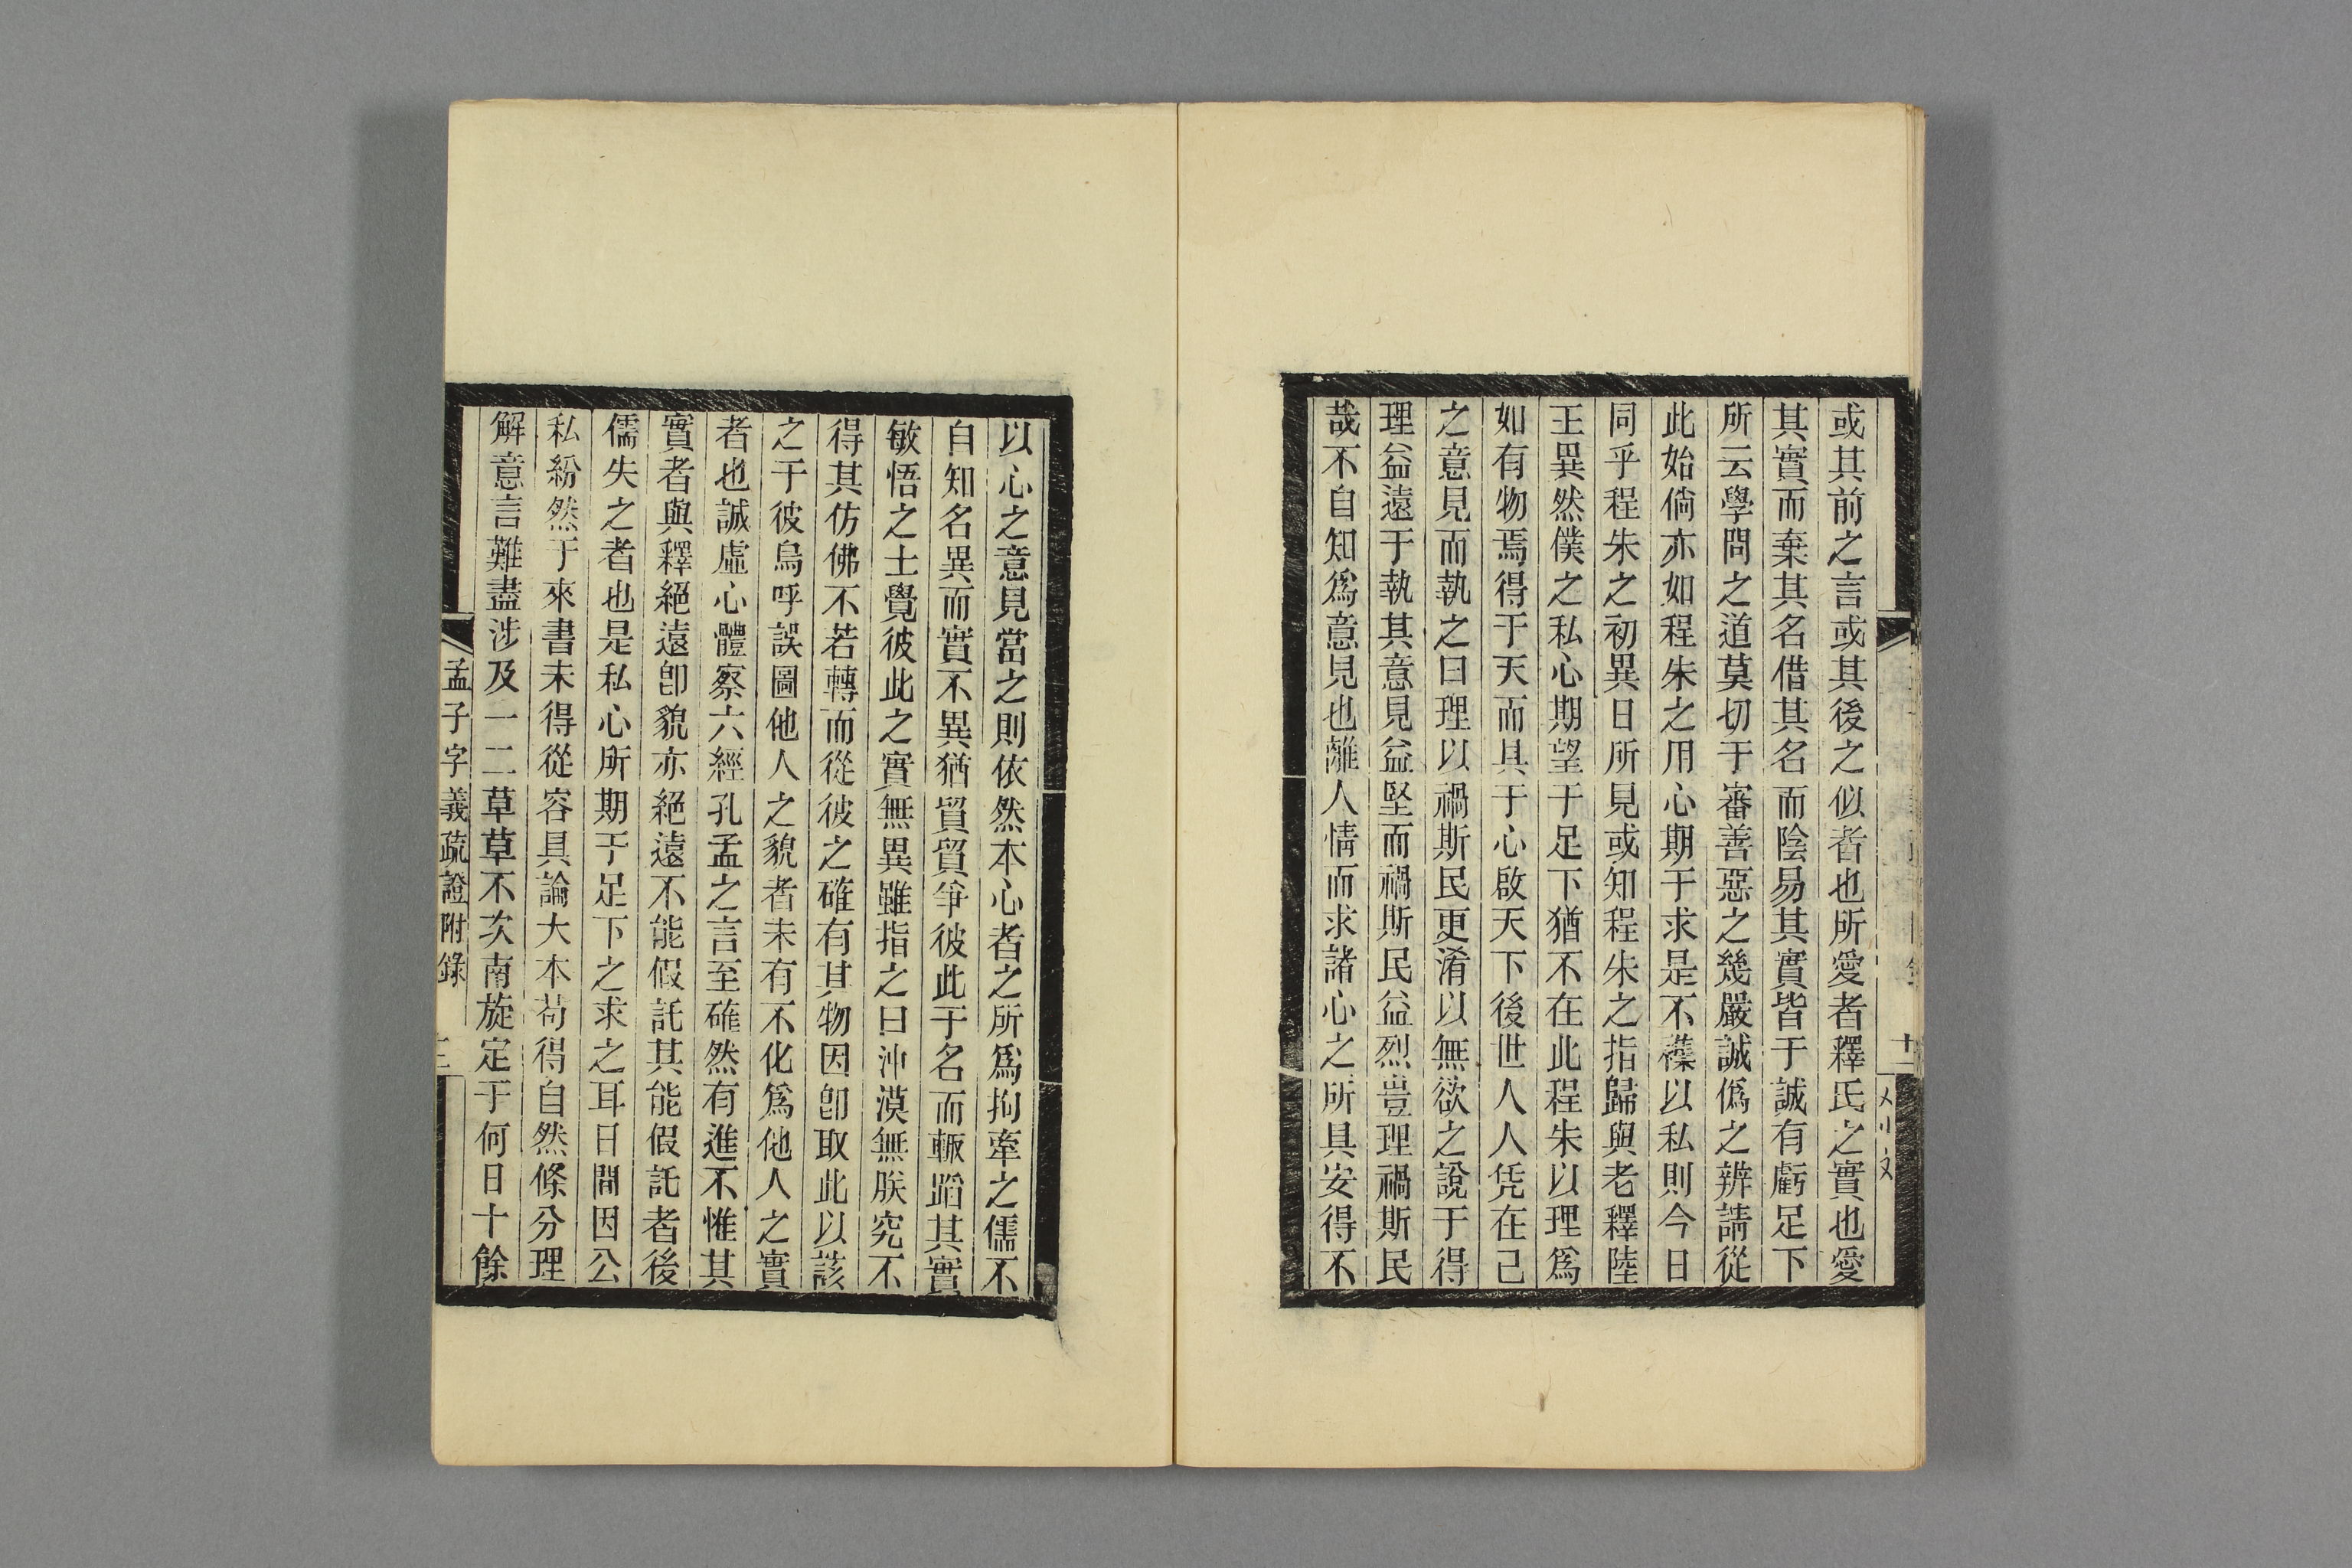 或其前之言或其後之似者也所愛者釋氏之實也愛
其實而棄其名借其名而陰易其實皆于誠有虧足下
所云學問之道莫切于審善惡之幾嚴誠僞之辨請從
此始倘亦如程朱之用心期于求是不襍以私則今日
同乎程朱之初異日所見或知程朱之指歸與老釋陸
王異然僕之私心期望于足下猶不在此程朱以理爲
如有物焉得于天而具于心啟天下後世人人凭在己
之意見而執之曰理以禍斯民更淆以無欲之說于得
理益遠于執其意見益堅而禍斯民益烈豈理禍斯民
哉不自知爲意見也離人情而求諸心之所具安得不
以心之意見當之則依然本心者之所爲拘牽之儒不
自知名異而實不異猶貿貿爭彼此于名而輒蹈其實
敏悟之士覺彼此之實無異雖指之曰沖漠無朕究不
得其仿佛不若轉而從彼之確有其物因卽取此以該
之于彼烏呼誤圖他人之貌者未有不化爲他人之實
者也誠虛心體察六經孔孟之言至確然有進不惟其
實者與釋絕遠卽貌亦絕遠不能假託其能假託者後
儒失之者也是私心所期于足下之求之耳日間因公
私紛然于來書未得從容具論大本苟得自然條分理
解意言難盡涉及一二草草不次南旋定于何日十餘
孟子字義疏證附錄